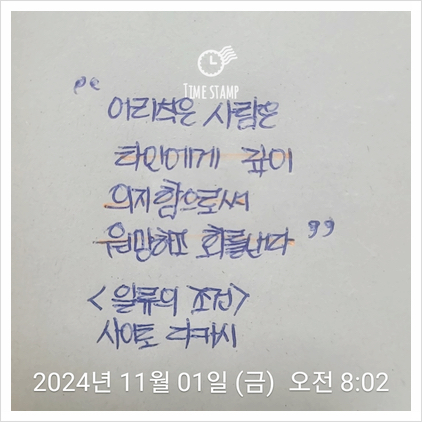 TIME STAMP
“어리석은 사람은
타인에게 깊이
의지함으로써
원망하고 화를 낸다”
<일류의 조건>
사이토 다카시
2024년 11월 01일 (금) 오전 8:02